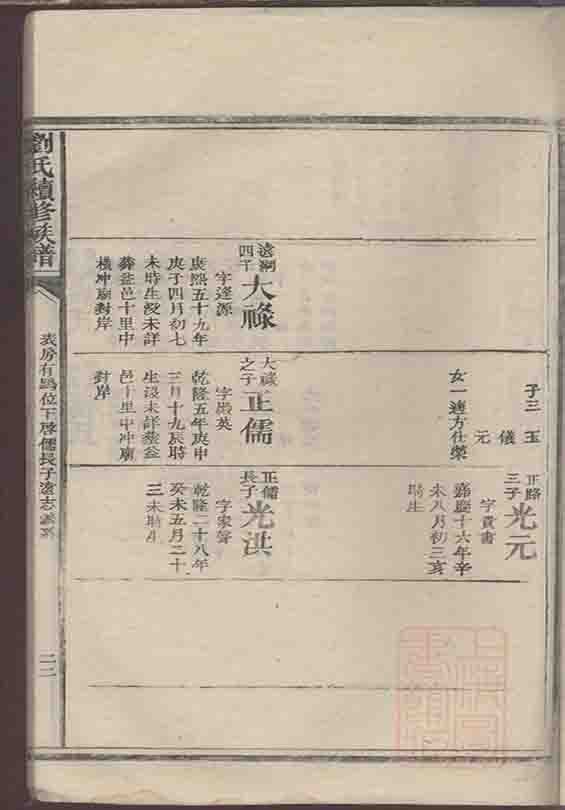 子三 玉
儀
元
女一適方仕榮
正路
三子
光元
字貢書
嘉慶十六年辛
未八月初三亥
時生
遠洞
四子
大祿
字逢源
康熙五十九年
庚子四月初七
未時生沒未詳
葬益邑十里中
橫冲廟對岸
大祿
之子
正儒
字殿英
乾隆五年庚申
三月十九辰時
生沒未詳葬益
邑十里中冲廟
對岸
正儒
長子
光洪
字家聲
乾隆二十八年
癸未五月二十
三未時生
劉氏續修族譜
表房有為位下啓儒長子遠志
二二